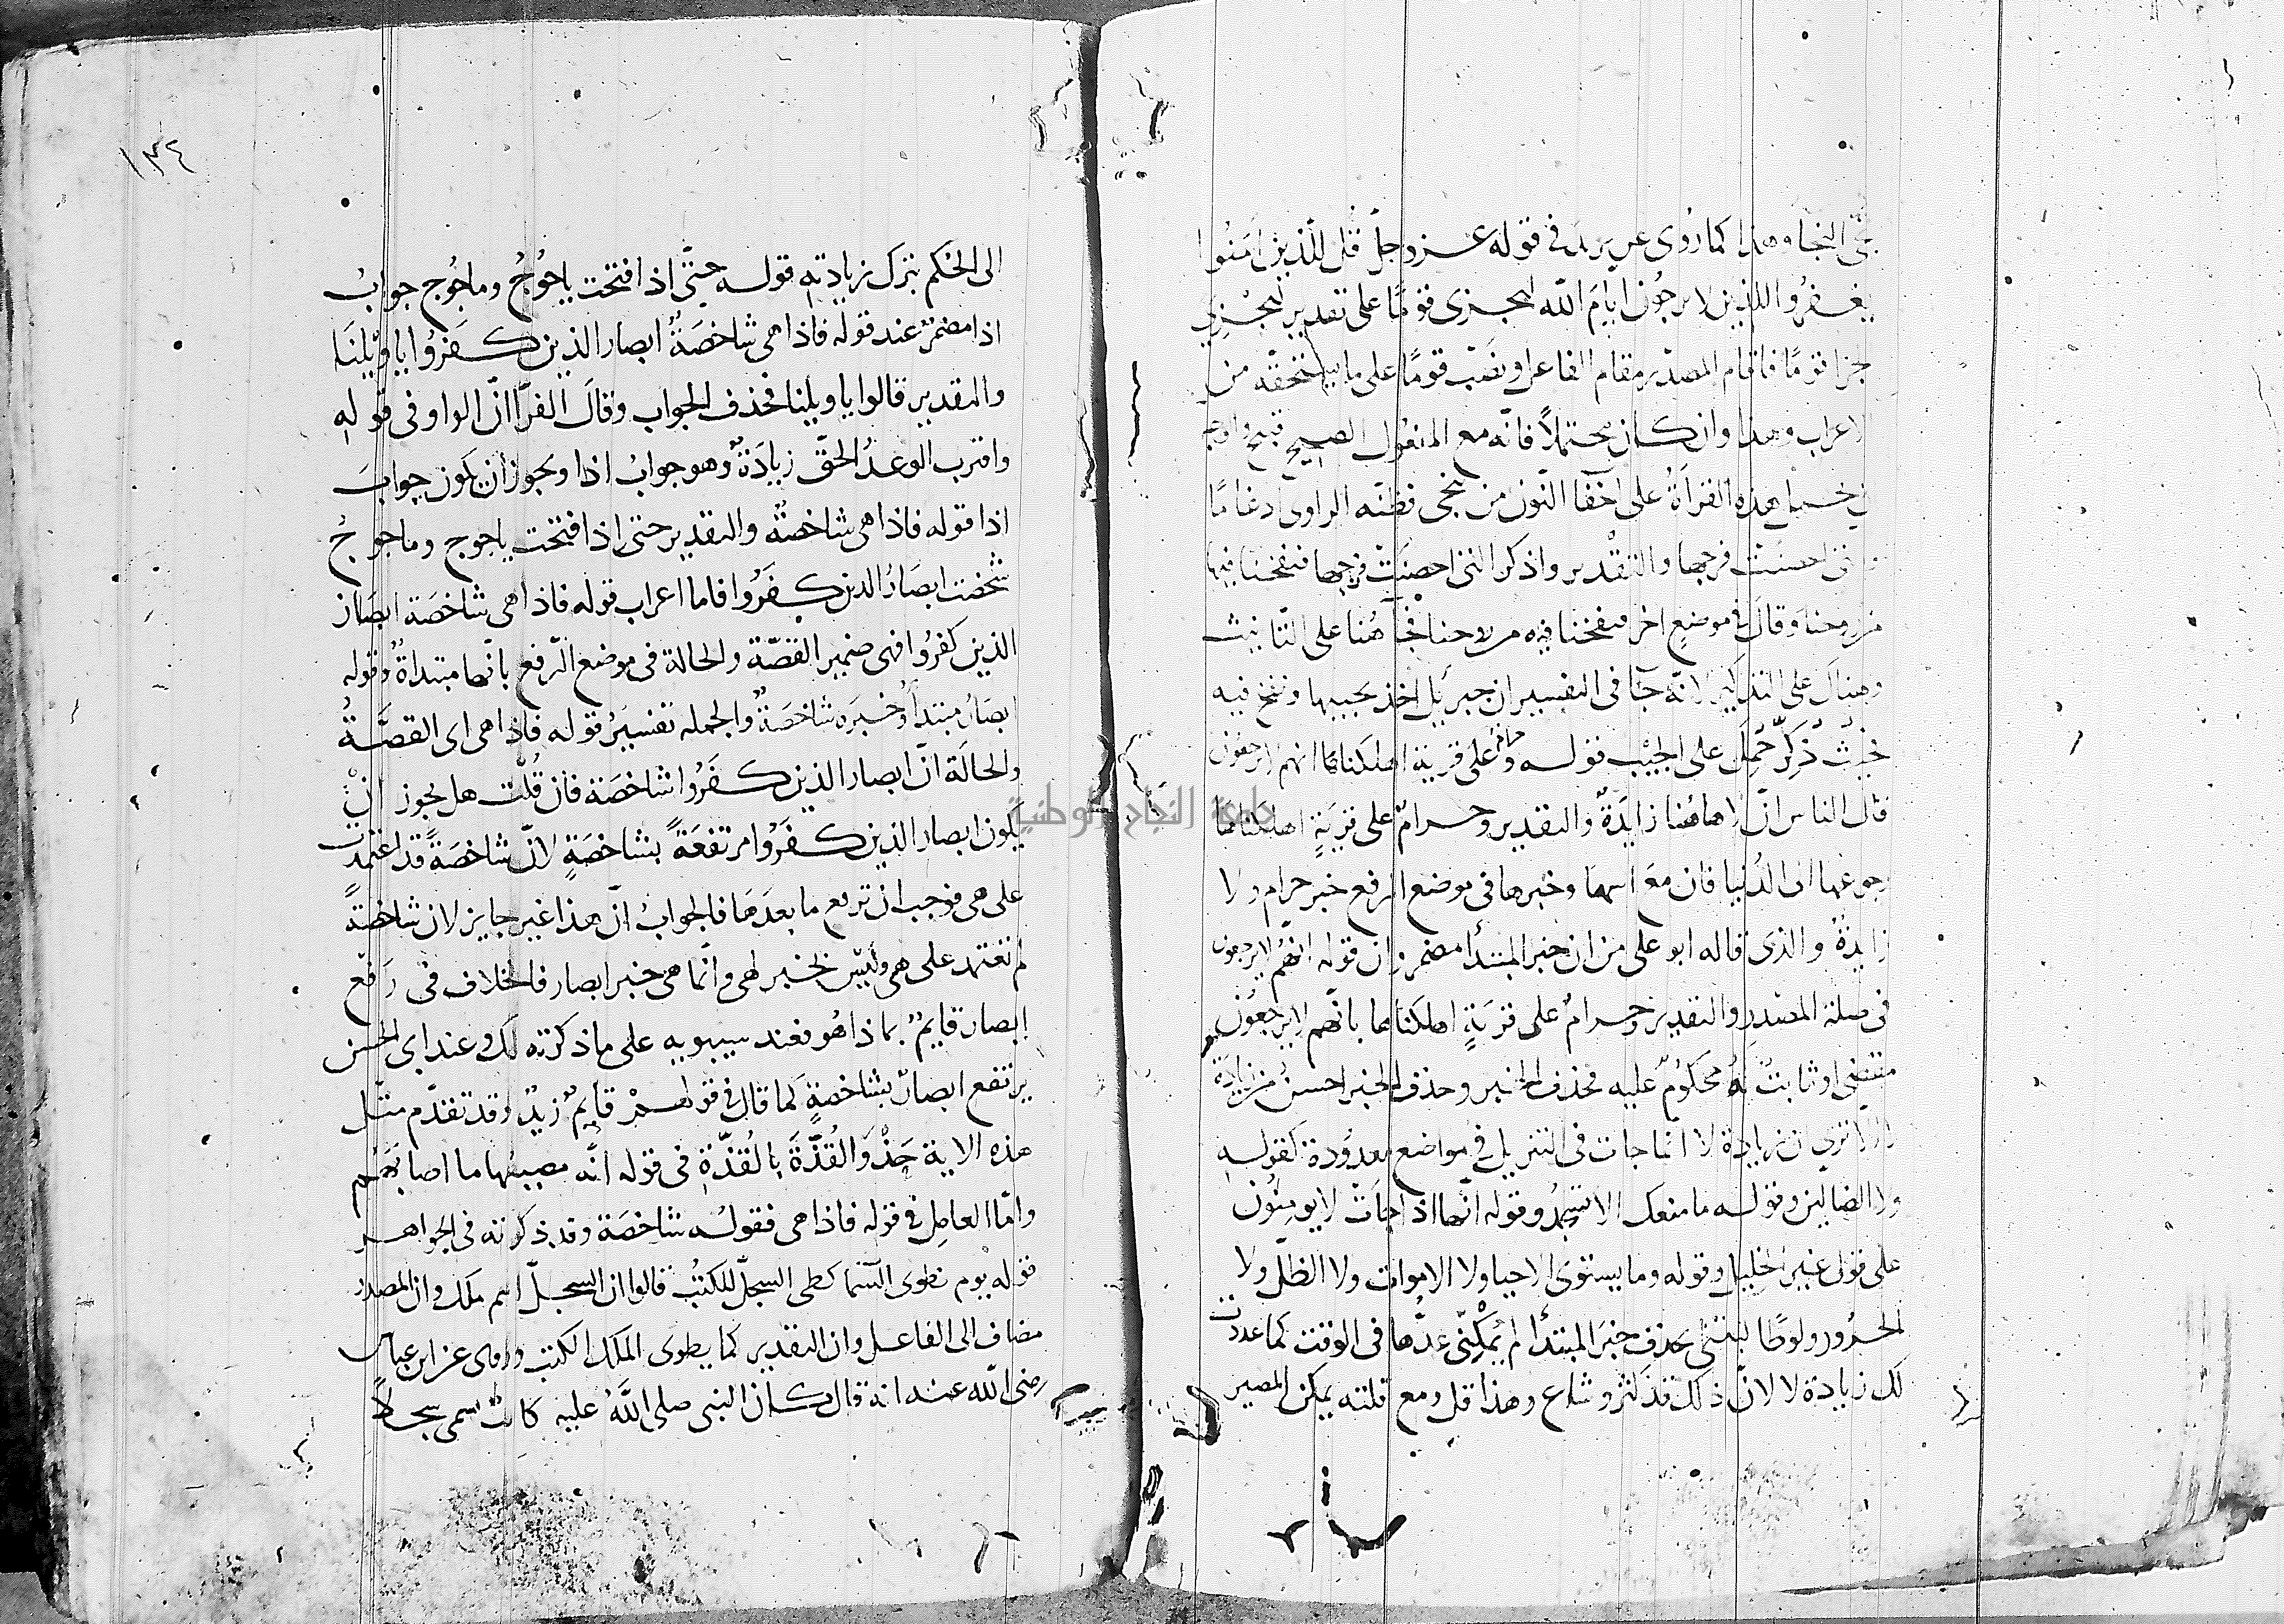 نجى النجا وهذا كما روى عن يزيد فى قوله عز وجل قل للذين امنوا
يغفروا للذين لا يرجون ايام الله ليجزى قوما على تقدير ليجزى
جزا قوما فاقام المصدر مقام الفاعل ونصب قوما على ما يستحقه من
الاعراب وهذا وان كان محتملا فانه مع المفعول الصحيح قبيح
هذه القراة على اخفا النون من ننجى فظنه الراوى ادغاما
والتى احصنت فرجها والتقدير واذكر التى احصنت فرجها فنفخنا فيها
من روحنا وقال فى موضع اخر فنفخنا فيه من روحنا فجا هنا على التانيث
وهناك على التذكير لانه جا فى التفسير ان جبريل اخذ بجيبها ونفخ فيه
فحيث ذكر حمل على الجيب قوله وحرام على قرية اهلكناها انهم لا يرجعون
قال الناس ان لا هاهنا زايدة والتقدير وحرام على قرية اهلكناها
رجوعها الى الدنيا فان مع اسمها وخبرها فى موضع الرفع خبر حرام ولا
زايدة والذى قاله ابو على من ان خبر المبتدأ مضمر وان قوله انهم لا يرجعون
فى صلة المصدر والتقدير وحرام على قرية اهلكناها بانهم لا يرجعون
مقتضى او ثابت او محكوم عليه فحذف الخبر وحذف الخبر احسن من زيادة
لا الا ترى ان زيادة لا انما جات فى التنزيل فى مواضع معدودة كقوله
ولا الضالين وقوله ما منعك الا تسجد وقوله انها اذا جات لا يومنون
على قول غير الخليل وقوله وما يستوى الاحيا ولا الاموات ولا الظل ولا
الحرور ولو كا بحذف خبر المبتدأ لم يمكننى عدها فى الوقت كما عددت
لك زيادة لا لان ذلك قد كثر وشاع وهذا قل ومع قلته يمكن المصير
١٣٤
الى الحكم بترك زيادته قوله حتى اذا فتحت ياجوج وماجوج جواب
اذا مضمر عند قوله فاذا هى شاخصة ابصار الذين كفروا يا ويلنا
والتقدير قالوا يا ويلنا فحذف الجواب وقال الفرا ان الواو فى قوله
واقترب الوعد الحق زيادة وهو جواب اذا ويجوز ان يكون جواب
اذا قوله فاذا هى شاخصة والتقدير حتى اذا فتحت ياجوج وماجوج
شخصت ابصار الذين كفروا فاما اعراب قوله فاذا هى شاخصة ابصار
الذين كفروا فهى ضمير القصة والحالة فى موضع الرفع بانها مبتداة وقوله
ابصار مبتدأ وخبره شاخصة والجملة تفسير قوله فاذا هى اى القصة
والحالة ان ابصار الذين كفروا شاخصة فان قلت هل يجوز ان
يكون ابصار الذين كفروا مرتفعة بشاخصة لان شاخصة قد اعتمدت
على هى فوجب ان ترفع ما بعدها فالجواب ان هذا غير جايز لان شاخصة
لم تعتمد على هى وليس بخبر لهى وانما هى خبر ابصار فالخلاف فى رفع
ابصار قايم بماذا هو فعند سيبويه على ما ذكرته لك وعند ابى الحسن
يرتفع ابصار بشاخصة كما قال فى قولهم قايم زيد وقد تقدم مثل
هذه الاية حذو القذة بالقذة فى قوله انه مصيبها ما اصابهم
واما العامل فى قوله فاذا هى فقوله شاخصة وقد ذكرته فى الجواهر
قوله يوم نطوى السما كطى السجل للكتب قالوا ان السجل اسم ملك وان المصدر
مضاف الى الفاعل وان التقدير كما يطوى الملك الكتب وروى عن ابن عباس
رضى الله عنه انه قال كان النبى صلى الله عليه كاتب يسمى سجلا
جامعة النجاح الوطنية